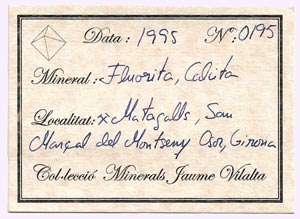 Data: 1995 Nº: 0195
Mineral: Fluorita, Calcita
Localitat: x Matagalls, San
Marçal del Montseny Osor, Girona
Col·lecció Minerals Jaume Vilalta